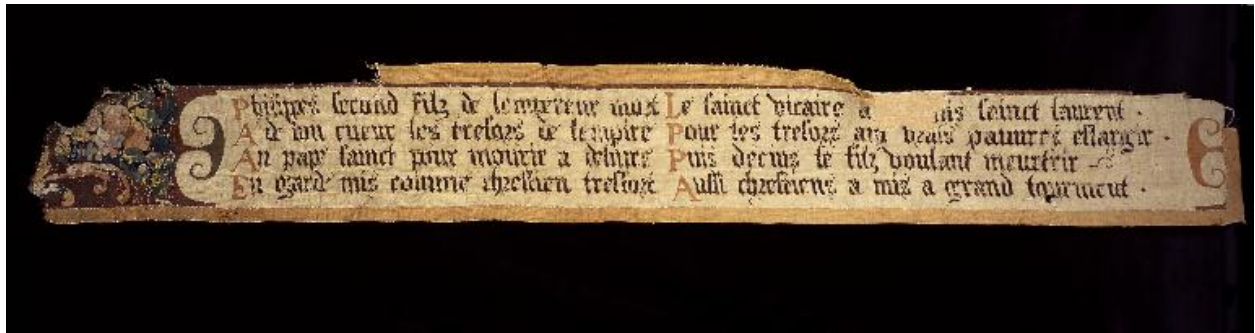 Phlippes second filz de lempereur mort
A dit mo cueur les tresors de lempire
An pape sainct pour mourir a delivre
En garde mis comme chrestien tresfort
Le sainct vicaire a mis sainct laurent ·
Pour les tresors aux vrais pauvres eslargir ·
Puis decius le filz voulant meurtrir
Aussi chrestiens a mis a grand tourment ·